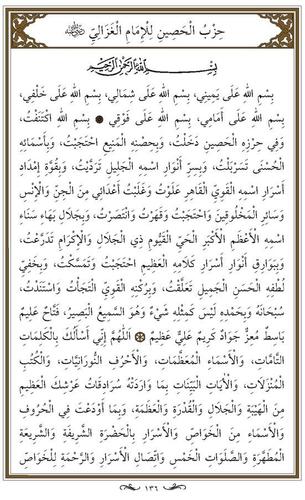 حِزْبُ الْحَصِينِ لِلْإِمَامِ الْغَزَالِيِّ
بِسْمِ اللهِ الرَّحْمٰنِ الرَّحِيمِ
بِسْمِ اللهِ عَلَى يَمِينِي، بِسْمِ اللهِ عَلَى شِمَالِي، بِسْمِ اللهِ عَلَى خَلْفِي،
بِسْمِ اللهِ عَلَى أَمَامِي، بِسْمِ اللهِ عَلَى فَوْقِي ۞ بِسْمِ اللهِ اكْتَنَفْتُ،
وَفِي حِرْزِهِ الْحَصِينِ دَخَلْتُ، وَبِحِصْنِهِ الْمَنِيعِ احْتَجَبْتُ، وَبِأَسْمَائِهِ
الْحُسْنَى تَسَرْبَلْتُ، وَبِسِرِّ أَنْوَارِ اسْمِهِ الْجَلِيلِ تَرَدَّيْتُ، وَبِقُوَّةِ إِمْدَادِ
أَسْرَارِ اسْمِهِ الْقَوِيِّ الْقَاهِرِ عَلَوْتُ وَغَلَبْتُ أَعْدَائِي مِنَ الْجِنِّ وَالْإِنْسِ
وَسَائِرِ الْمَخْلُوقِينَ وَاحْتَجَبْتُ وَقَهَرْتُ وَانْتَصَرْتُ، وَبِجَلَالِ بَهَاءِ سَنَاءِ
اسْمِهِ الْأَعْظَمِ الْأَكْبَرِ الْحَيِّ الْقَيُّومِ ذِي الْجَلَالِ وَالْإِكْرَامِ تَدَرَّعْتُ،
وَبِبَوَارِقِ أَنْوَارِ أَسْرَارِ كَلَامِهِ الْعَظِيمِ احْتَجَبْتُ وَتَمَسَّكْتُ، وَبِخَفِيِّ
لُطْفِهِ الْحَسَنِ الْجَمِيلِ تَعَلَّقْتُ، وَبِرُكْنِهِ الْقَوِيِّ الْتَجَأْتُ وَاسْتَنَدْتُ،
سُبْحَانَهُ وَبِحَمْدِهِ لَيْسَ كَمِثْلِهِ شَيْءٌ وَهُوَ السَّمِيعُ الْبَصِيرُ، فَتَّاحٌ عَلِيمٌ
بَاسِطٌ مُعِزٌّ جَوَادٌ كَرِيمٌ عَلِيٌّ عَظِيمٌ ۞ اَللّٰهُمَّ إِنِّي أَسْأَلُكَ بِالْكَلِمَاتِ
التَّامَّاتِ، وَالْأَسْمَاءِ الْمُعَظَّمَاتِ، وَالْأَحْرُفِ النُّورَانِيَّاتِ، وَالْكُتُبِ
الْمُنْزَلَاتِ، وَالْآيَاتِ الْبَيِّنَاتِ بِمَا وَارَدَتْهُ سُرَادِقَاتُ عَرْشِكَ الْعَظِيمِ
مِنَ الْهَيْبَةِ وَالْجَلَالِ وَالْقُدْرَةِ وَالْعَظَمَةِ، وَبِمَا أَوْدَعْتَ فِي الْحُرُوفِ
وَالْأَسْمَاءِ مِنَ الْخَوَاصِّ وَالْأَسْرَارِ بِالْحَضْرَةِ الشَّرِيفَةِ وَالشَّرِيعَةِ
الْمُطَهَّرَةِ وَالصَّلَوَاتِ الْخَمْسِ وَاتِّصَالِ الْأَسْرَارِ وَالرَّحْمَةِ لِلْخَوَاصِّ
١٣٦